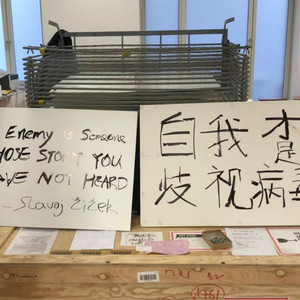 Enemy is Someone
HOSE STORY YOU
AVE NOT HEARD
- Slavoj Žižek
自我才是
歧视病毒